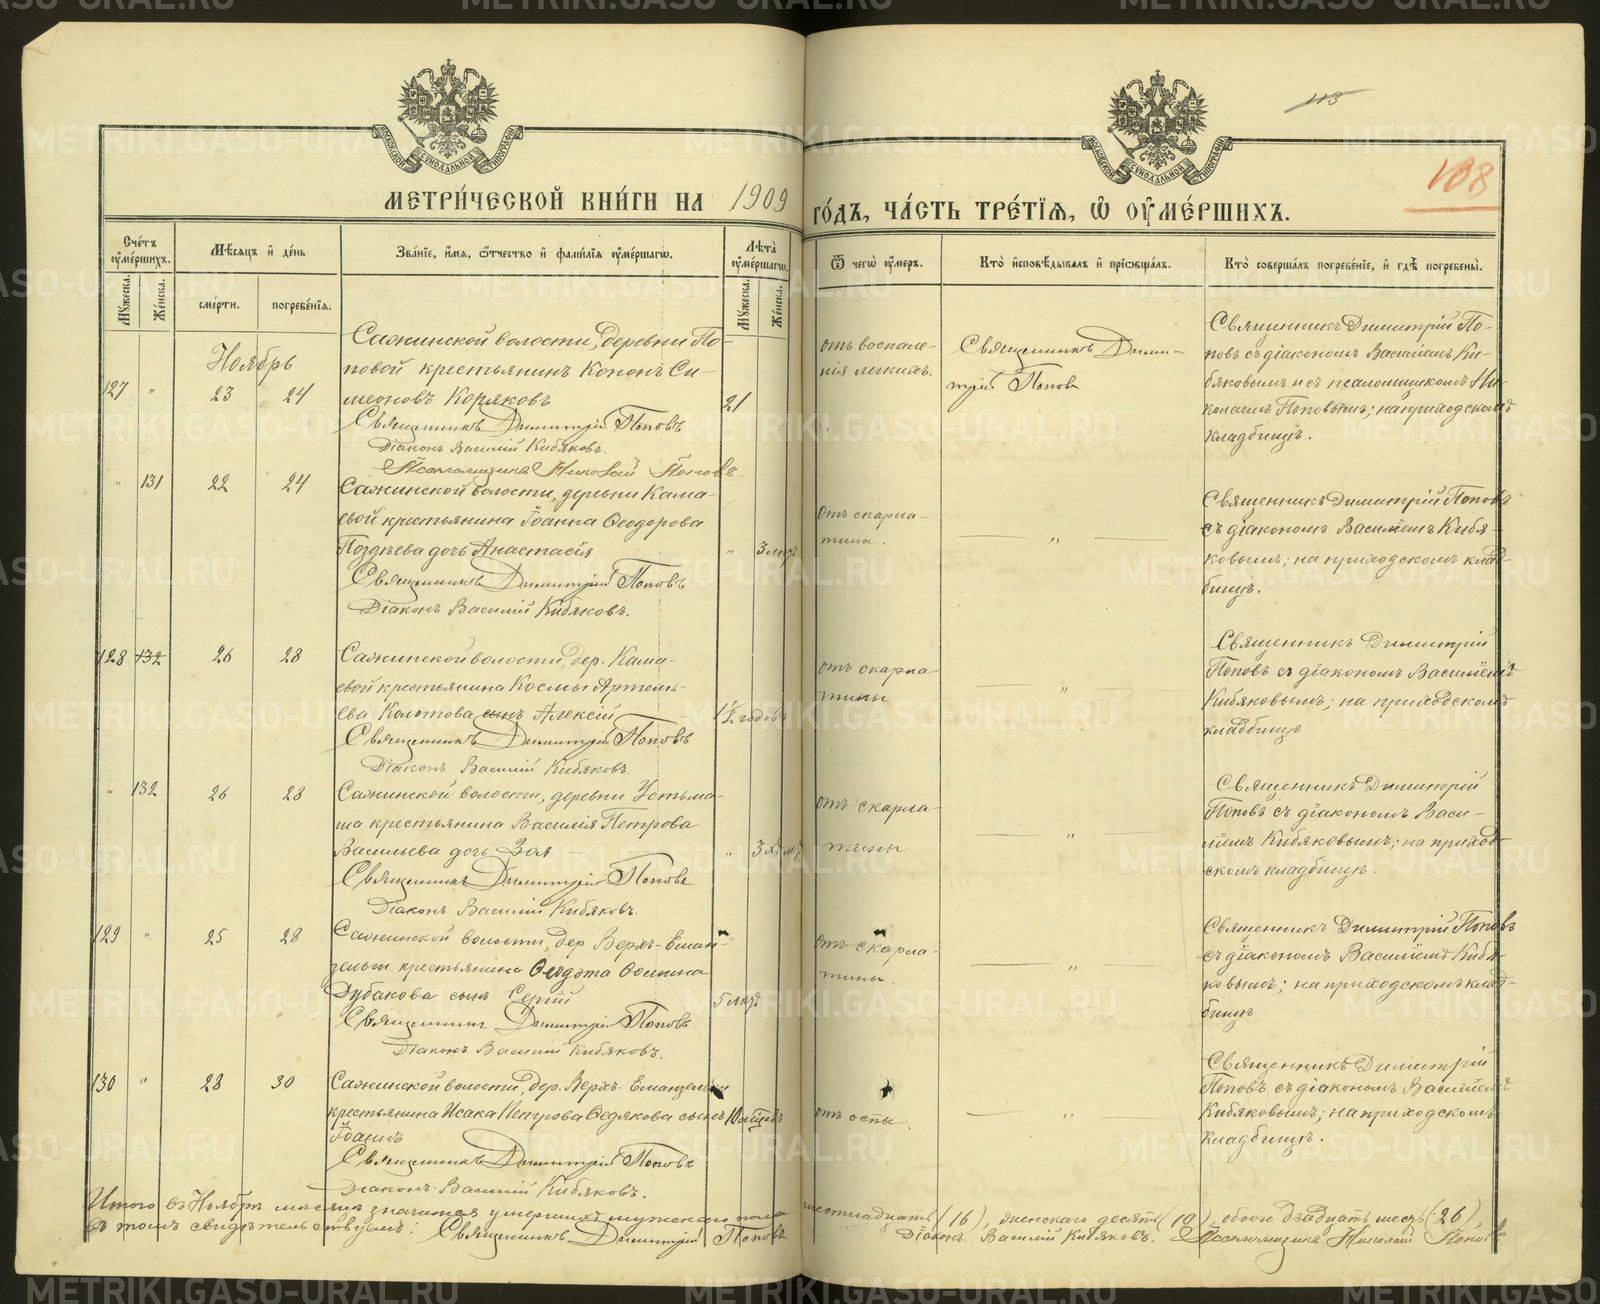 115
108
МОСКОВСКОЙ СѴНОДАЛЬНОЙ ТИПОГРАФІИ
МОСКОВСКОЙ СѴНОДАЛЬНОЙ ТИПОГРАФІИ
МЕТРИ́ЧЕСКОЙ КНИ́ГИ НА 1909 ГО́ДЪ, ЧА́СТЬ ТРЕ́ТІѦ, Ѿ ОУМЕ́РШИХЪ.
Счетъ оумершихъ.
Мужеска.
Женска.
Мѣсяцъ и день
смерти.
погребенія.
Званіе, имя, отчество и фамилія оумершагω.
Лѣта оумершагω.
Мужеска.
Женска.
Ѿ чегω оумеръ.
Кто исповѣдывалъ и пріобщалъ.
Кто совершалъ погребеніе, и гдѣ погребены.
Ноябрь
127 " 23 24
Сажинской волости, деревни По-
повой крестьянинъ Кононъ Си-
меоновъ Коряковъ
21
Священникъ Димитрій Поповъ
Діаконъ Василій Кибяковъ.
Псаломщикъ Николай Поповъ
отъ воспале-
нія легкихъ.
Священникъ Дими-
трій Поповъ
Священникъ Димитрій По-
повъ съ діакономъ Василіемъ Ки-
бяковымъ и съ псаломщикомъ Ни-
колаемъ Поповымъ; на приходскомъ
кладбищѣ.
" 131 22 24
Сажинской волости, деревни Кама-
евой крестьянина Іоанна Ѳеодорова
Позднѣева дочь Анастасія
" 3 лѣтъ
Священникъ Димитрій Поповъ
Діаконъ Василій Кибяковъ.
отъ скарла-
тины.
"
Священникъ Димитрій Поповъ
съ діакономъ Василіемъ Кибя-
ковымъ; на приходскомъ клад-
бищѣ.
128 132 26 28
Сажинской волости, дер. Кама-
евой крестьянина Космы Артемь-
ева Колотова сынъ Алексій
1½ годовъ
Священникъ Димитрій Поповъ
Діаконъ Василій Кибяковъ
отъ скарла-
тины
"
Священникъ Димитрій
Поповъ съ діакономъ Василіемъ
Кибяковымъ; на приходскомъ
кладбищѣ
" 132 26 28
Сажинской волости, деревни Устьма-
ша крестьянина Василія Петрова
Васильева дочь Зоя
" 3
Священникъ Димитрій Поповъ
Діаконъ Василій Кибяковъ.
отъ скарла-
тины
"
Священникъ Димитрій
Поповъ съ діакономъ Васи-
ліемъ Кибяковымъ; на приход-
скомъ кладбищѣ.
129 " 25 28
Сажинской волости, дер Верхъ-Еман-
зельги крестьянина Ѳеодота Ѳомина
Дубакова сынъ Сергій
5 лѣтъ
Священникъ Димитрій Поповъ
Діаконъ Василій Кибяковъ.
отъ скарла-
тины.
"
Священникъ Димитрій Поповъ
съ діакономъ Василіемъ Кибя-
ковымъ; на приходскомъ клад-
бищѣ
130 " 28 30
Сажинской волости, дер. Верхъ-Еманзельги
крестьянина Исака Петрова Ѳедякова сынъ
Іоасифъ
10 мѣсяцевъ
Священникъ Димитрій Поповъ
Діаконъ Василій Кибяковъ.
отъ оспы.
"
Священникъ Димитрій
Поповъ съ діакономъ Василіемъ
Кибяковымъ; на приходскомъ
кладбищѣ.
Итого въ Ноябрѣ мѣсяцѣ значится умершихъ мужескаго пола шестнадцать (16), женскаго десять (10), обоего двадцать шесть (26)
въ томъ свидѣтельствуемъ: Священникъ Димитрій Поповъ Діаконъ Василій Кибяковъ. Псаломщикъ Николай Поповъ
METRIKI.GASO-URAL.RU